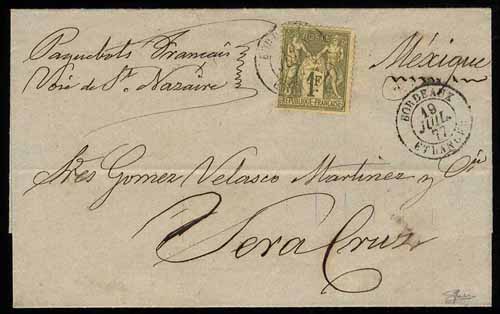 Paquebots Francais
Voie de St. Nazaire
Méxique
1F
REPUBLIQUE FRANÇAISE
BORDEAUX
19
JUIL.
77
ETRANGER
Sres Gomez Velasco Martinez y Cia
Vera Cruz